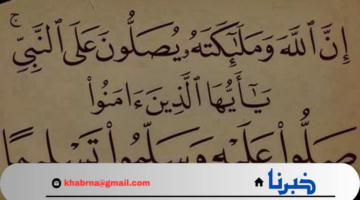 إِنَّ ٱللَّهَ وَمَلَٰٓئِكَتَهُۥ يُصَلُّونَ عَلَى ٱلنَّبِىِّ ۚ
يَٰٓأَيُّهَا ٱلَّذِينَ ءَامَنُوا۟
صَلُّوا۟ عَلَيْهِ وَسَلِّمُوا۟ تَسْلِيمًا
khabrna@gmail.com
خبرنا